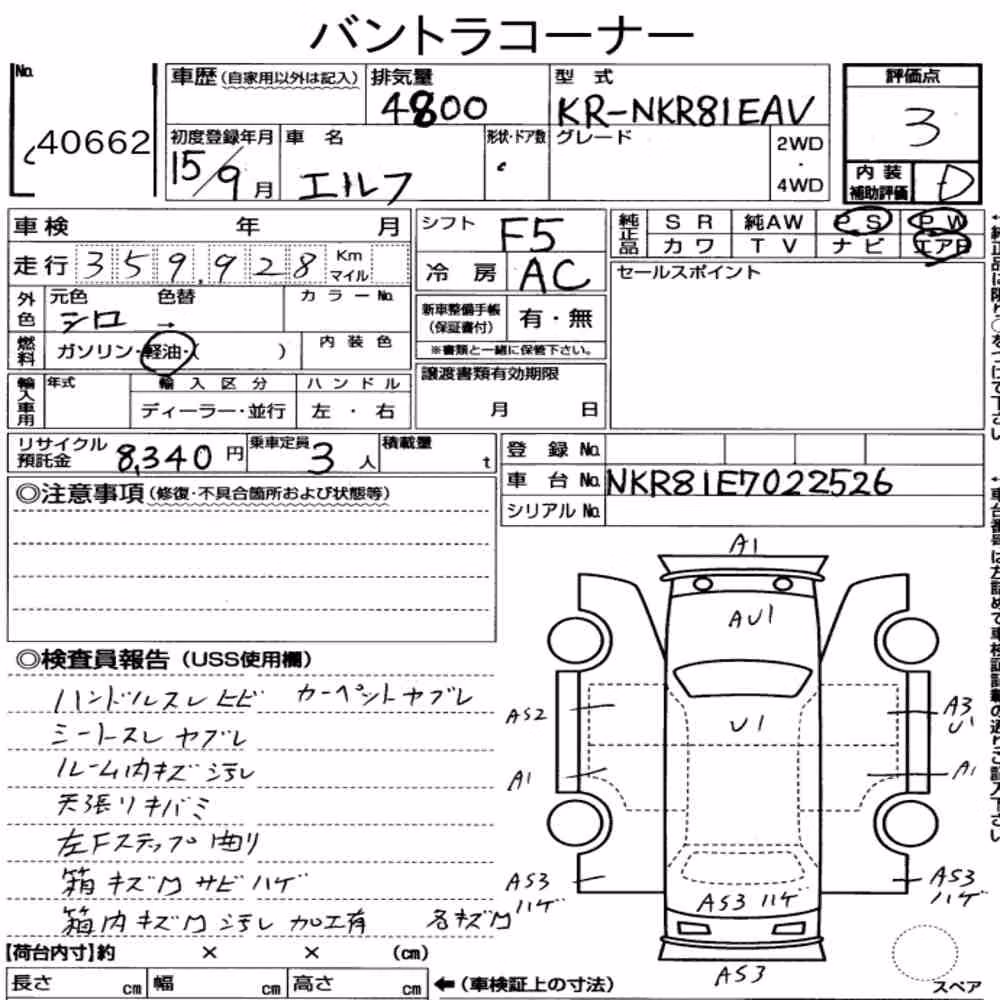 バントラコーナー
No. 40662
車歴 (自家用以外は記入)
排気量 4800
型式 KR-NKR81EAV
評価点 3
初度登録年月 15/9月
車名 エルフ
形状・ドア数
グレード
2WD・4WD
内装補助評価 D
車検 年 月
走行 359,928 Km マイル
外色 元色 シロ → 色替 カラーNo.
燃料 ガソリン・軽油・( ) 内装色
輸入車用 年式 輸入区分 ハンドル
ディーラー・並行 左・右
シフト F5
冷房 AC
新車整備手帳 (保証書付) 有・無
※書類と一緒に保管下さい。
譲渡書類有効期限
月 日
純正品 SR 純AW PS PW
カワ TV ナビ エアB
セールスポイント
リサイクル預託金 8,340円
乗車定員 3人
積載量 t
登録No.
車台No. NKR81E7022526
シリアルNo.
◎注意事項 (修復・不具合箇所および状態等)
◎検査員報告 (USS使用欄)
ハンドルスレ ヒビ カーペットヤブレ
シートスレ ヤブレ
ルーム内キズ 汚レ
天張リキバミ
左Fステップ曲リ
箱キズ凹 サビ ハゲ
箱内キズ凹 汚レ 加工有 各キズ凹
A1
AU1
U1
AS2
A1
AS3
ハゲ
A3
U1
A1
AS3
ハゲ
AS3 ハゲ
AS3
スペア
【荷台内寸】約 × × (cm)
長さ cm 幅 cm 高さ cm ←(車検証上の寸法)